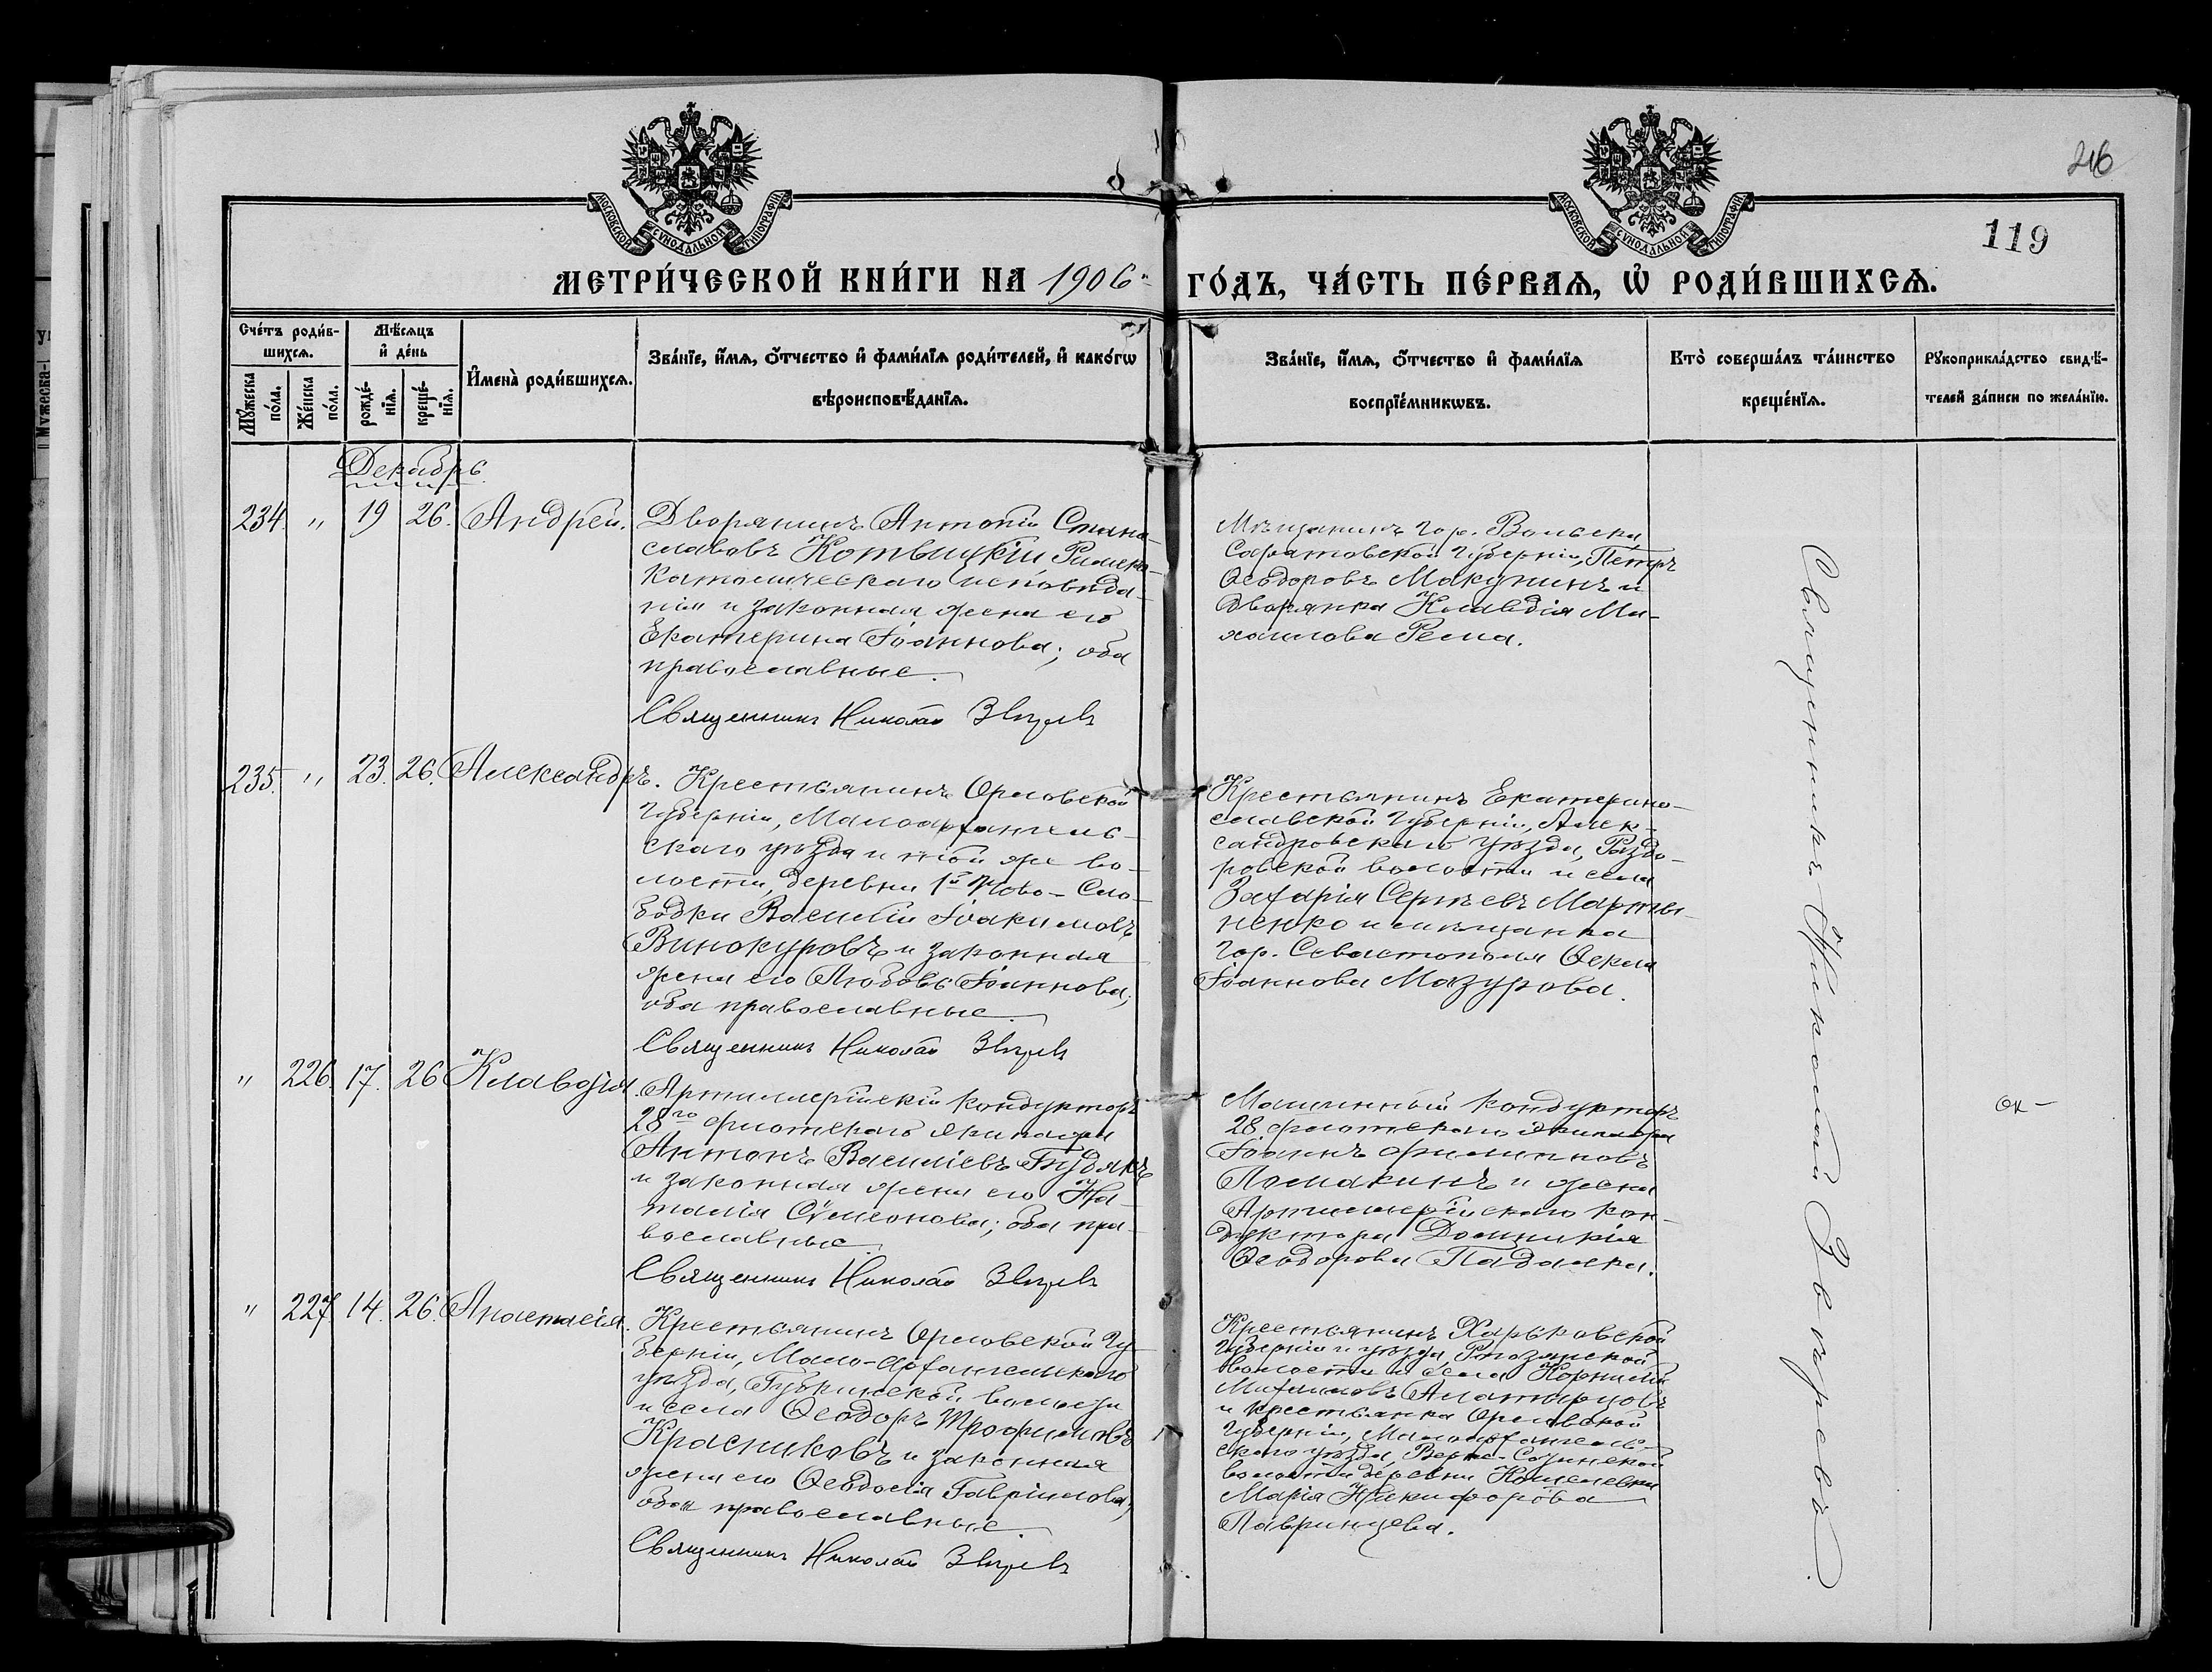 216
119
МОСКОВСКОЙ СѴНОДАЛЬНОЙ ТИПОГРАФІИ
МОСКОВСКОЙ СѴНОДАЛЬНОЙ ТИПОГРАФІИ
МЕТРИ́ЧЕСКОЙ КНИ́ГИ НА 1906 ГО́ДЪ, ЧА́СТЬ ПЕ́РВАѦ, Ѡ҆ РОДИ́ВШИХСѦ.
Сче́тъ роди́в-
шихсѧ.
Мꙋ́жеска по́ла.
Же́нска по́ла.
Мѣ́сѧцъ
и҆ де́нь
рожде́-
нїѧ.
креще́-
нїѧ.
И҆мена̀ роди́вшихсѧ.
Зва́нїе, и҆́мѧ, ѻ҆́тчество и҆ фами́лїѧ роди́телей, и҆ како́гѡ
вѣроисповѣ́данїѧ.
Зва́нїе, и҆́мѧ, ѻ҆́тчество и҆ фами́лїѧ
воспрїе́мникѡвъ.
Кто̀ соверша́лъ та́инство
креще́нїѧ.
Рꙋкоприкла́дство свидѣ́-
телей за́писи по жела́нїю.
Декабрь
234. " 19 26. Андрей.
Дворянинъ Антоній Стани-
славовъ Котвицкій Римско-
Католическаго исповѣда-
нія и законная жена его
Екатерина Іоаннова; оба
православные.
Священникъ Николай Звѣревъ
Мѣщанинъ гор. Вольска,
Саратовской губерніи, Петръ
Ѳеодоровъ Макунинъ и
Дворянка Клавдія Ми-
хаилова
235. " 23. 26. Александръ.
Крестьянинъ Орловской
губерніи, Малоархангель-
скаго уѣзда и той же во-
лости, деревни 1й Ново-Сло-
бодки Василій Іоакимовъ
Винокуровъ и законная
жена его Любовь Іоаннова;
оба православные.
Священникъ Николай Звѣревъ
Крестьянинъ Екатерино-
славской губерніи, Алек-
сандровскаго уѣзда, Раздо-
ровской волости и села
Захарія Сергѣевъ Марты-
ненко и мѣщанка
гор. Севастополя Ѳекла
Іоаннова Мазурова.
" 226. 17. 26 Клавдія.
Артиллерійскій Кондукторъ
28го флотскаго экипажа
Антонъ Василіевъ Гудзякъ
и законная жена его На-
талія Сѵмеонова; оба пра-
вославные.
Священникъ Николай Звѣревъ
Машинный Кондукторъ
28 флотскаго экипажа
Іоаннъ Филипповъ
Ломакинъ и жена
Артиллерійскаго кон-
дуктора Домникія
Ѳеодорова Падалка.
ок-
" 227. 14. 26. Анастасія.
Крестьянинъ Орловской гу-
берніи, Мало-Архангельскаго
уѣзда, Губкинской волости
и села Ѳеодоръ Трофимовъ
Красниковъ и законная
жена его Ѳеодосія Гавріилова;
оба православные.
Священникъ Николай Звѣревъ
Крестьянинъ Харьковской
губерніи и уѣзда,
волости и села Корнилій
и крестьянка Орловской
губерніи, Малоархангель-
скаго уѣзда, Верхне-Сосенской
волости деревни
Марія Никифорова
Лавринцева.
Священникъ Николай Звѣревъ.